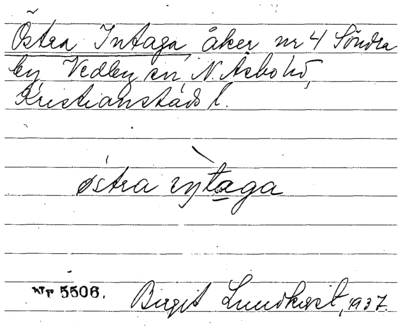 Östra Intaga, åker nr 4 Södra
by, Vedby sn, N. Åsbo hd,
Kristianstads l.
östra ı̀ntaga
Nr 5506. Birgit Lundkvist, 1937.